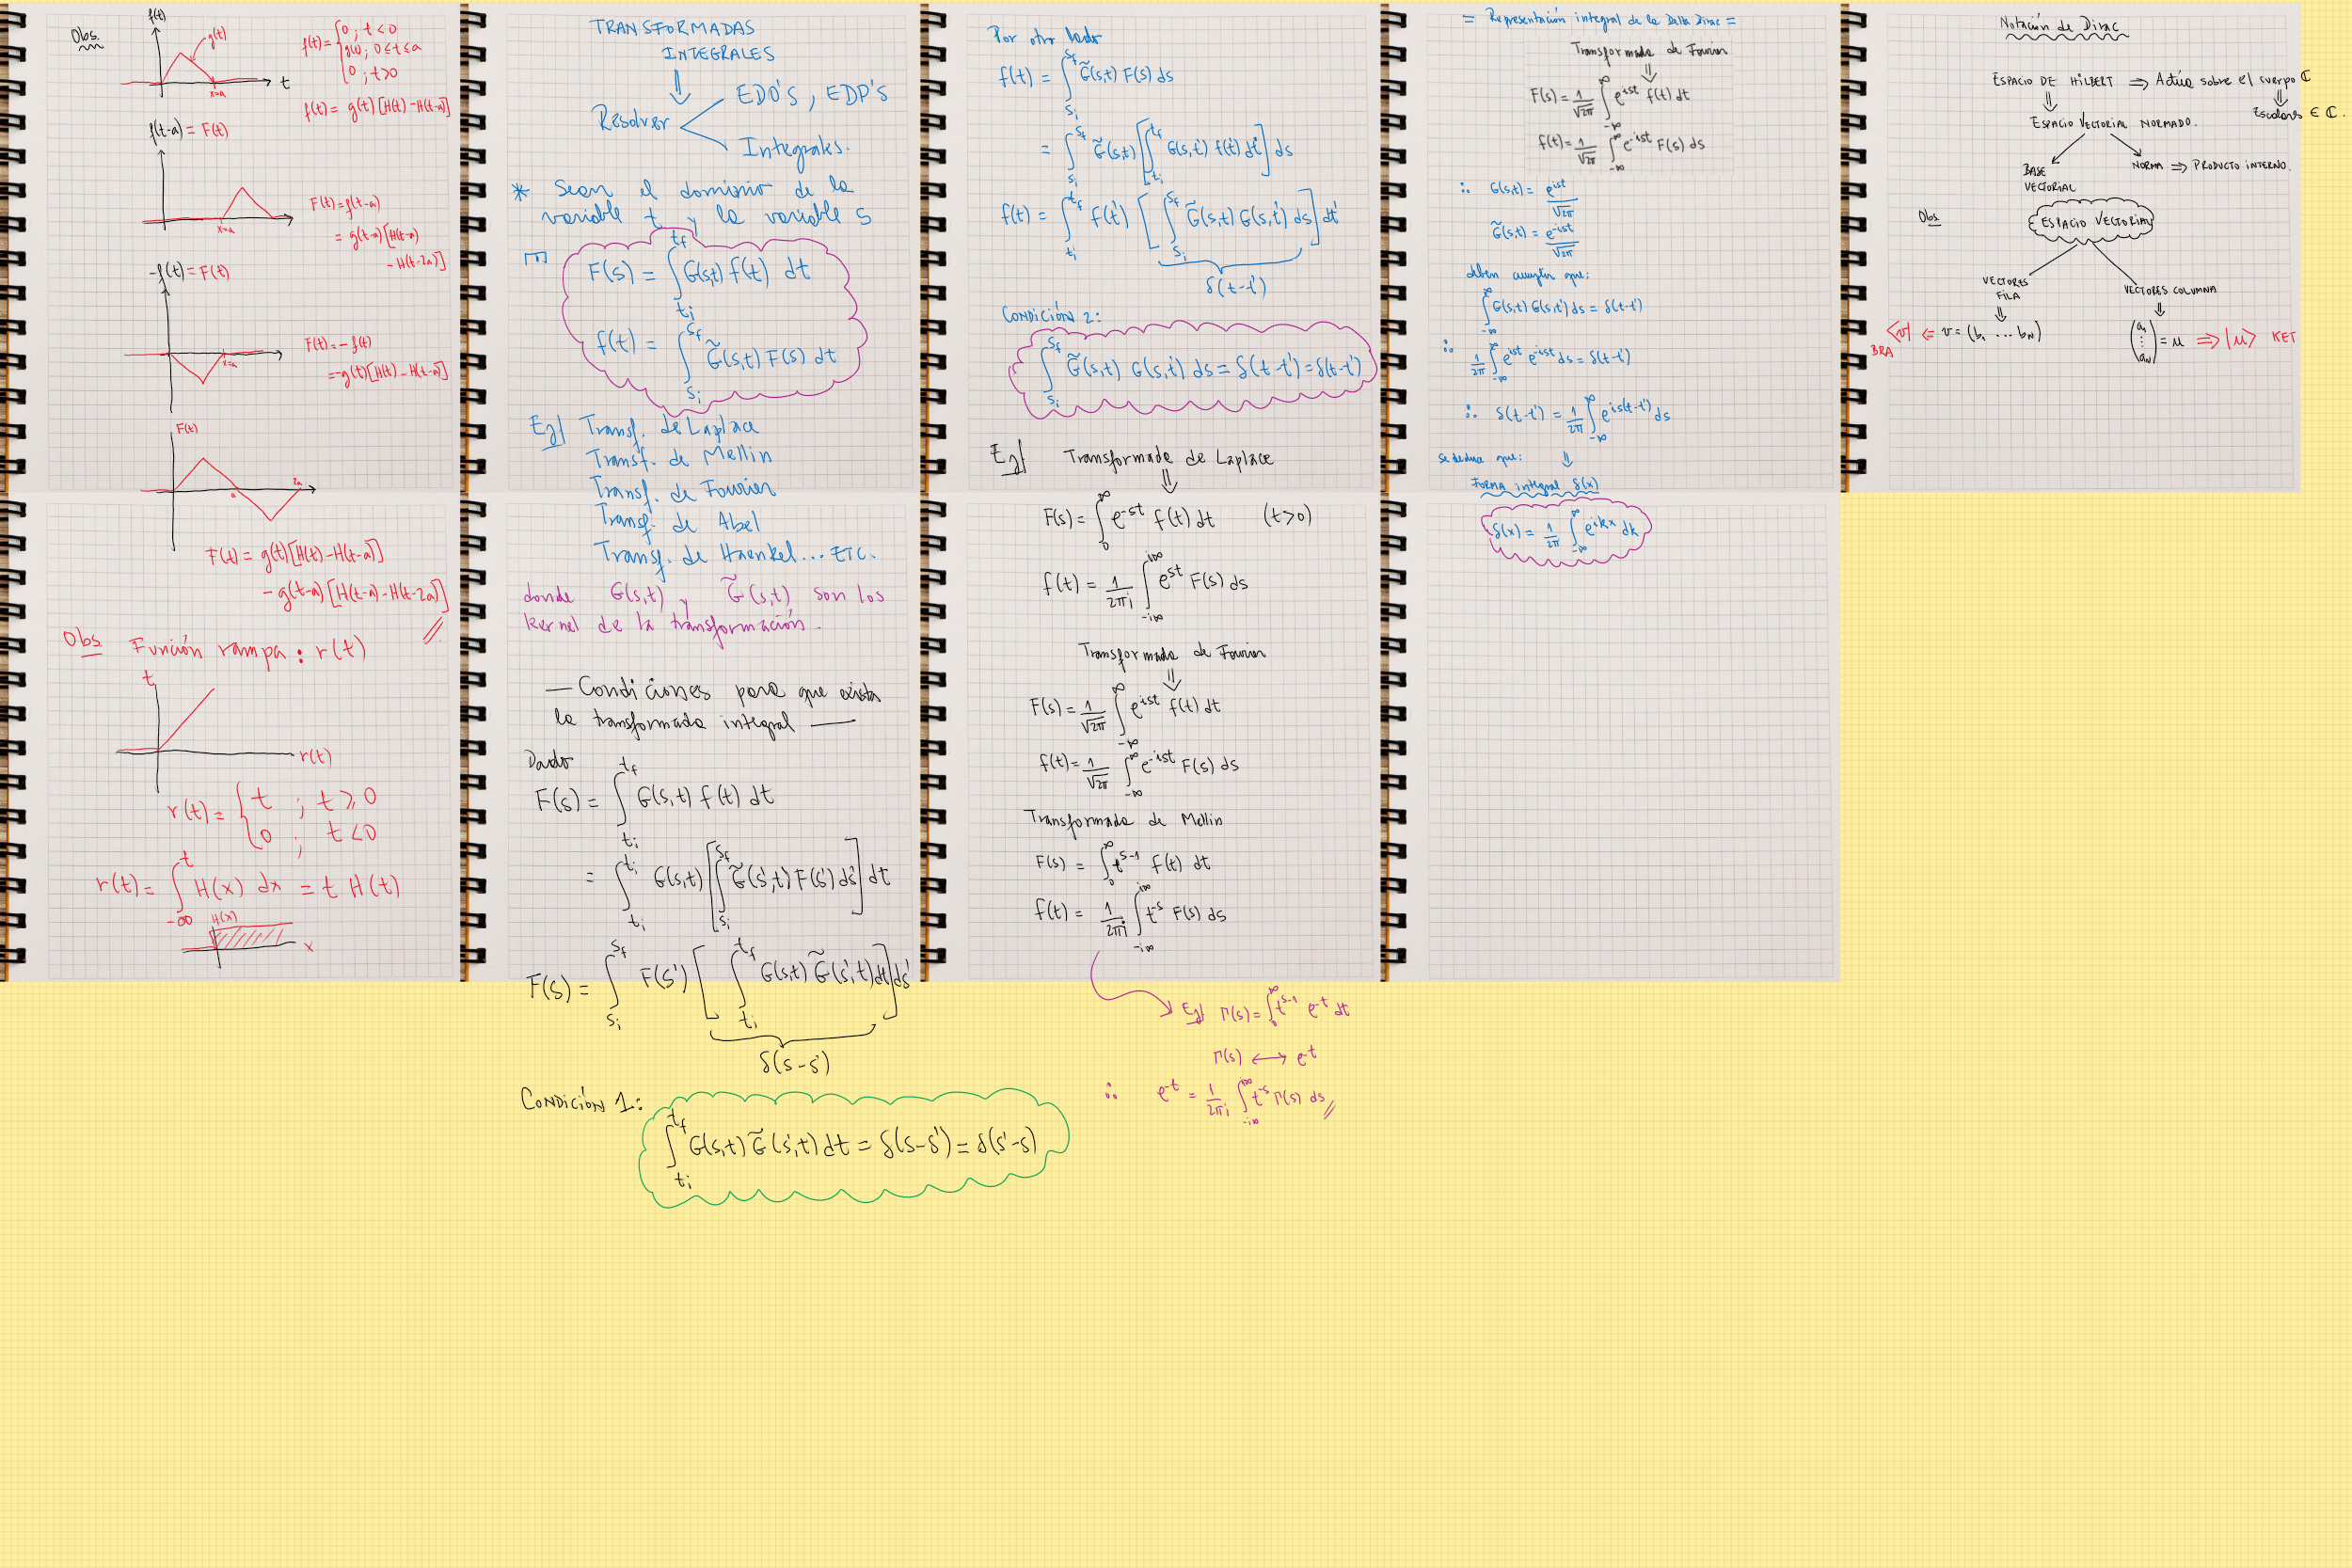 Obs.
f(t)
g(t)
t
x=a
f(t) = { 0 ; t < 0
g(t) ; 0 ≤ t ≤ a
0 ; t > 0
f(t) = g(t) [H(t) - H(t-a)]
f(t-a) = F(t)
x=a
F(t) = f(t-a)
= g(t-a) [H(t-a)
- H(t-2a)]
-f(t) = F(t)
x=a
F(t) = -f(t)
= -g(t) [H(t) - H(t-a)]
F(t)
a
2a
F(t) = g(t) [H(t) - H(t-a)]
- g(t-a) [H(t-a) - H(t-2a)]
Obs Función rampa : r(t)
t
r(t)
r(t) = { t ; t ≥ 0
0 ; t < 0
r(t) = ∫_{-∞}^{t} H(x) dx = t H(t)
H(x)
x
TRANSFORMADAS
INTEGRALES
⇓
Resolver
EDO'S , EDP'S
Integrales.
* Sean el dominio de la
variable t y la variable s
F(s) = ∫_{ti}^{tf} G(s,t) f(t) dt
f(t) = ∫_{si}^{sf} G̃(s,t) F(s) dt
Ej/ Transf. de Laplace
Transf. de Mellin
Transf. de Fourier
Transf. de Abel
Transf. de Haenkel... ETC.
donde G(s,t) y G̃(s,t) son los
kernel de la transformación.
— Condiciones para que exista
la transformada integral —
Dado
F(s) = ∫_{ti}^{tf} G(s,t) f(t) dt
= ∫_{ti}^{ti} G(s,t) [∫_{si}^{sf} G̃(s',t) F(s') ds'] dt
F(s) = ∫_{si}^{sf} F(s') [∫_{ti}^{tf} G(s,t) G̃(s',t) dt] ds'
δ(s-s')
CONDICIÓN 1:
∫_{ti}^{tf} G(s,t) G̃(s',t) dt = δ(s-s') = δ(s'-s)
Por otro lado
f(t) = ∫_{si}^{sf} G̃(s,t) F(s) ds
= ∫_{si}^{sf} G̃(s,t) [∫_{ti}^{tf} G(s,t') f(t') dt'] ds
f(t) = ∫_{ti}^{tf} f(t') [∫_{si}^{sf} G̃(s,t) G(s,t') ds] dt'
δ(t-t')
CONDICIÓN 2:
∫_{si}^{sf} G̃(s,t) G(s,t') ds = δ(t-t') = δ(t-t')
Ej/ Transformada de Laplace
⇓
F(s) = ∫_{0}^{∞} e^{-st} f(t) dt (t>0)
f(t) = 1/2πi ∫_{-i∞}^{i∞} e^{st} F(s) ds
Transformada de Fourier
⇓
F(s) = 1/√2π ∫_{-∞}^{∞} e^{ist} f(t) dt
f(t) = 1/√2π ∫_{-∞}^{∞} e^{-ist} F(s) ds
Transformada de Mellin
F(s) = ∫_{0}^{∞} t^{s-1} f(t) dt
f(t) = 1/2πi ∫_{-i∞}^{i∞} t^{-s} F(s) ds
Ej/ Γ(s) = ∫_{0}^{∞} t^{s-1} e^{-t} dt
Γ(s) ⟷ e^{-t}
∴ e^{-t} = 1/2πi ∫_{-i∞}^{i∞} t^{-s} Γ(s) ds
= Representación integral de la Delta Dirac =
Transformada de Fourier
⇓
F(s) = 1/√2π ∫_{-∞}^{∞} e^{ist} f(t) dt
f(t) = 1/√2π ∫_{-∞}^{∞} e^{-ist} F(s) ds
∴ G(s,t) = e^{ist}/√2π
G̃(s,t) = e^{-ist}/√2π
deben cumplir que:
∫_{-∞}^{∞} G(s,t) G(s,t') ds = δ(t-t')
∴ 1/2π ∫_{-∞}^{∞} e^{ist} e^{-ist} ds = δ(t-t')
∴ δ(t-t') = 1/2π ∫_{-∞}^{∞} e^{is(t-t')} ds
se deduce que: ⇓
FORMA integral δ(x)
δ(x) = 1/2π ∫_{-∞}^{∞} e^{ikx} dk
Notación de Dirac
ESPACIO DE HILBERT ⇒ Actúa sobre el cuerpo ℂ
⇓
Escalares ∈ ℂ.
ESPACIO VECTORIAL NORMADO.
BASE
VECTORIAL
NORMA ⇒ PRODUCTO INTERNO.
Obs
ESPACIO VECTORIAL
VECTORES
FILA
VECTORES COLUMNA
⟨v| ⇐ v = (b₁ ... b_N)
BRA
(a₁ ⋮ a_N) = u ⇒ |u⟩ KET